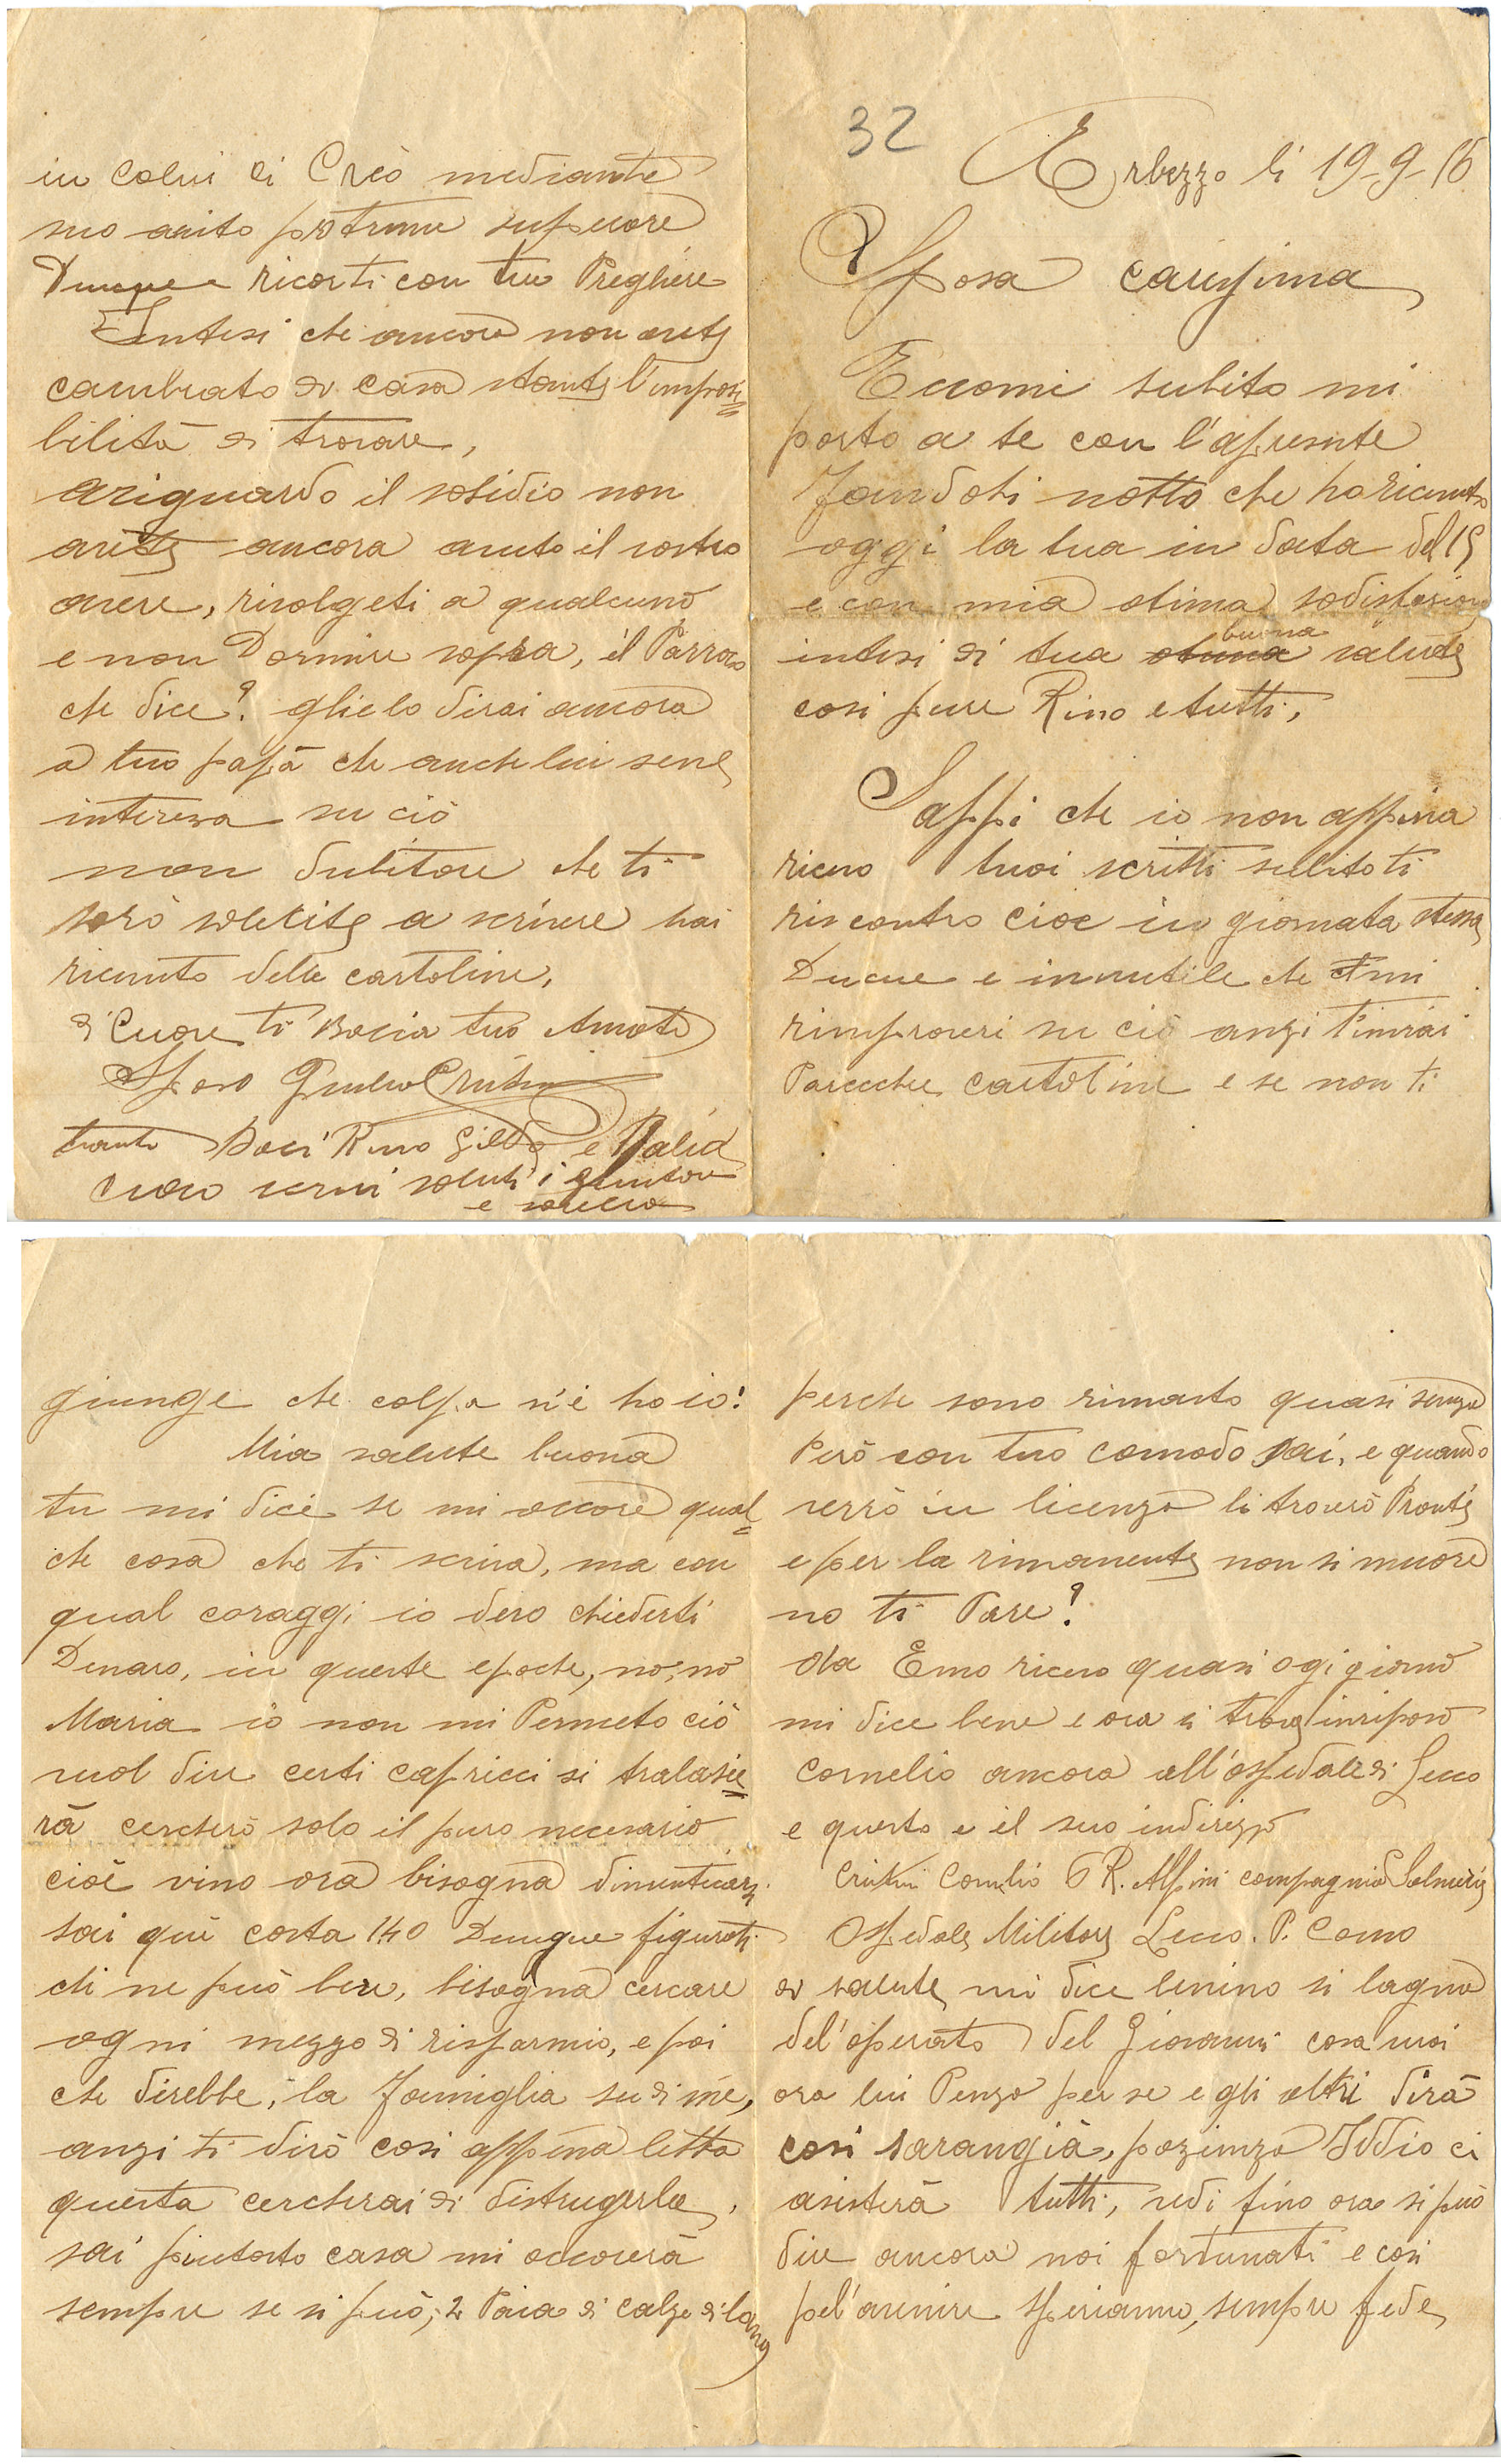 32
Erbezzo li 19-9-16
Sposa carissima
Eccomi subito mi
porto a te con l'apresente
Fandoti notto che ho ricevuto
oggi la tua in data del 15
e con mia stima sodisfasione
intesi di tua stima buona salute
cosi pure Rino e tutti,
Sappi che io non appena
ricevo i tuoi scritti subito ti
riscontro cioe in giornata stessa
Ducue e innutile che mi
rimproveri su ciò anzi t'inviai
Parecchie cartoline e se non ti
giunge che colpa n'é ho io!
Mia salute buona
tu mi dici se mi occore qual=
che cosa che ti scriva, ma con
qual coraggi io devo chiederti
Denaro, in queste epoche, no, no
Maria io non mi Permeto ciò
vuol dire certi capricci si tralascie=
rà cercherò solo il puro necesario
cioè vino ora bisogna dimenticarsi
sai quì costa 140 Dunque figurati
chi ne può bere, bisogna cercare
ogni mezzo di risparmio, e poi
che direbbe, la Famiglia su di me,
anzi ti dirò cosi appena letta
questa cercherai di distrugerla,
sai piutosto casa mi occorerà
sempre se si può, 2 Paia di calze di lana
perche sono rimasto quasi senza
Però con tuo comodo sai, e quando
verrò in licenza li troverò Pronti
e per la rimanente non si muore
no ti Pare?
da Emo ricevo quasi ogi giorno
mi dice bene e ora si trova in riposo
Cornelio ancora all'ospedale di Lecco
e questo e il suo indirizzo
Cornelio 6 R. Alpini compagnia Salmerie
Ospedale Militare Lecco. P. Como
di salute mi dice benino si lagna
del'operato del Giovanni cosa vuoi
ora lui Penza per se e gli altri dirà
cosi sarangià, pazienza Iddio ci
asisterà tutti, vedi fino ora si può
dire ancora noi fortunati e cosi
pel'avenire speriamo, sempre fede
in colui di Creò mediante
suo aiito potremo superare
Dunque ricorti con tue Preghiere
Intesi che ancora non avete
cambiato di casa stante l'imposi=
bilità di trovare,
ariguardo il sosidio non
avete ancora avuto il vostro
avere, rivolgeti a qualcuno
e non Dormire sopra, il Parroco
che dice? glielo dirai ancora
a tuo papà che anche lui sene
interessa su ciò
non dubitare che ti
sarò solecite a scrivere hai
ricevuto delle cartoline,
di Cuore ti Bacia tuo Amato
Sposo Giulio
tanti Baci Rino Gilda e
scrivi saluti i genitori
e sorella